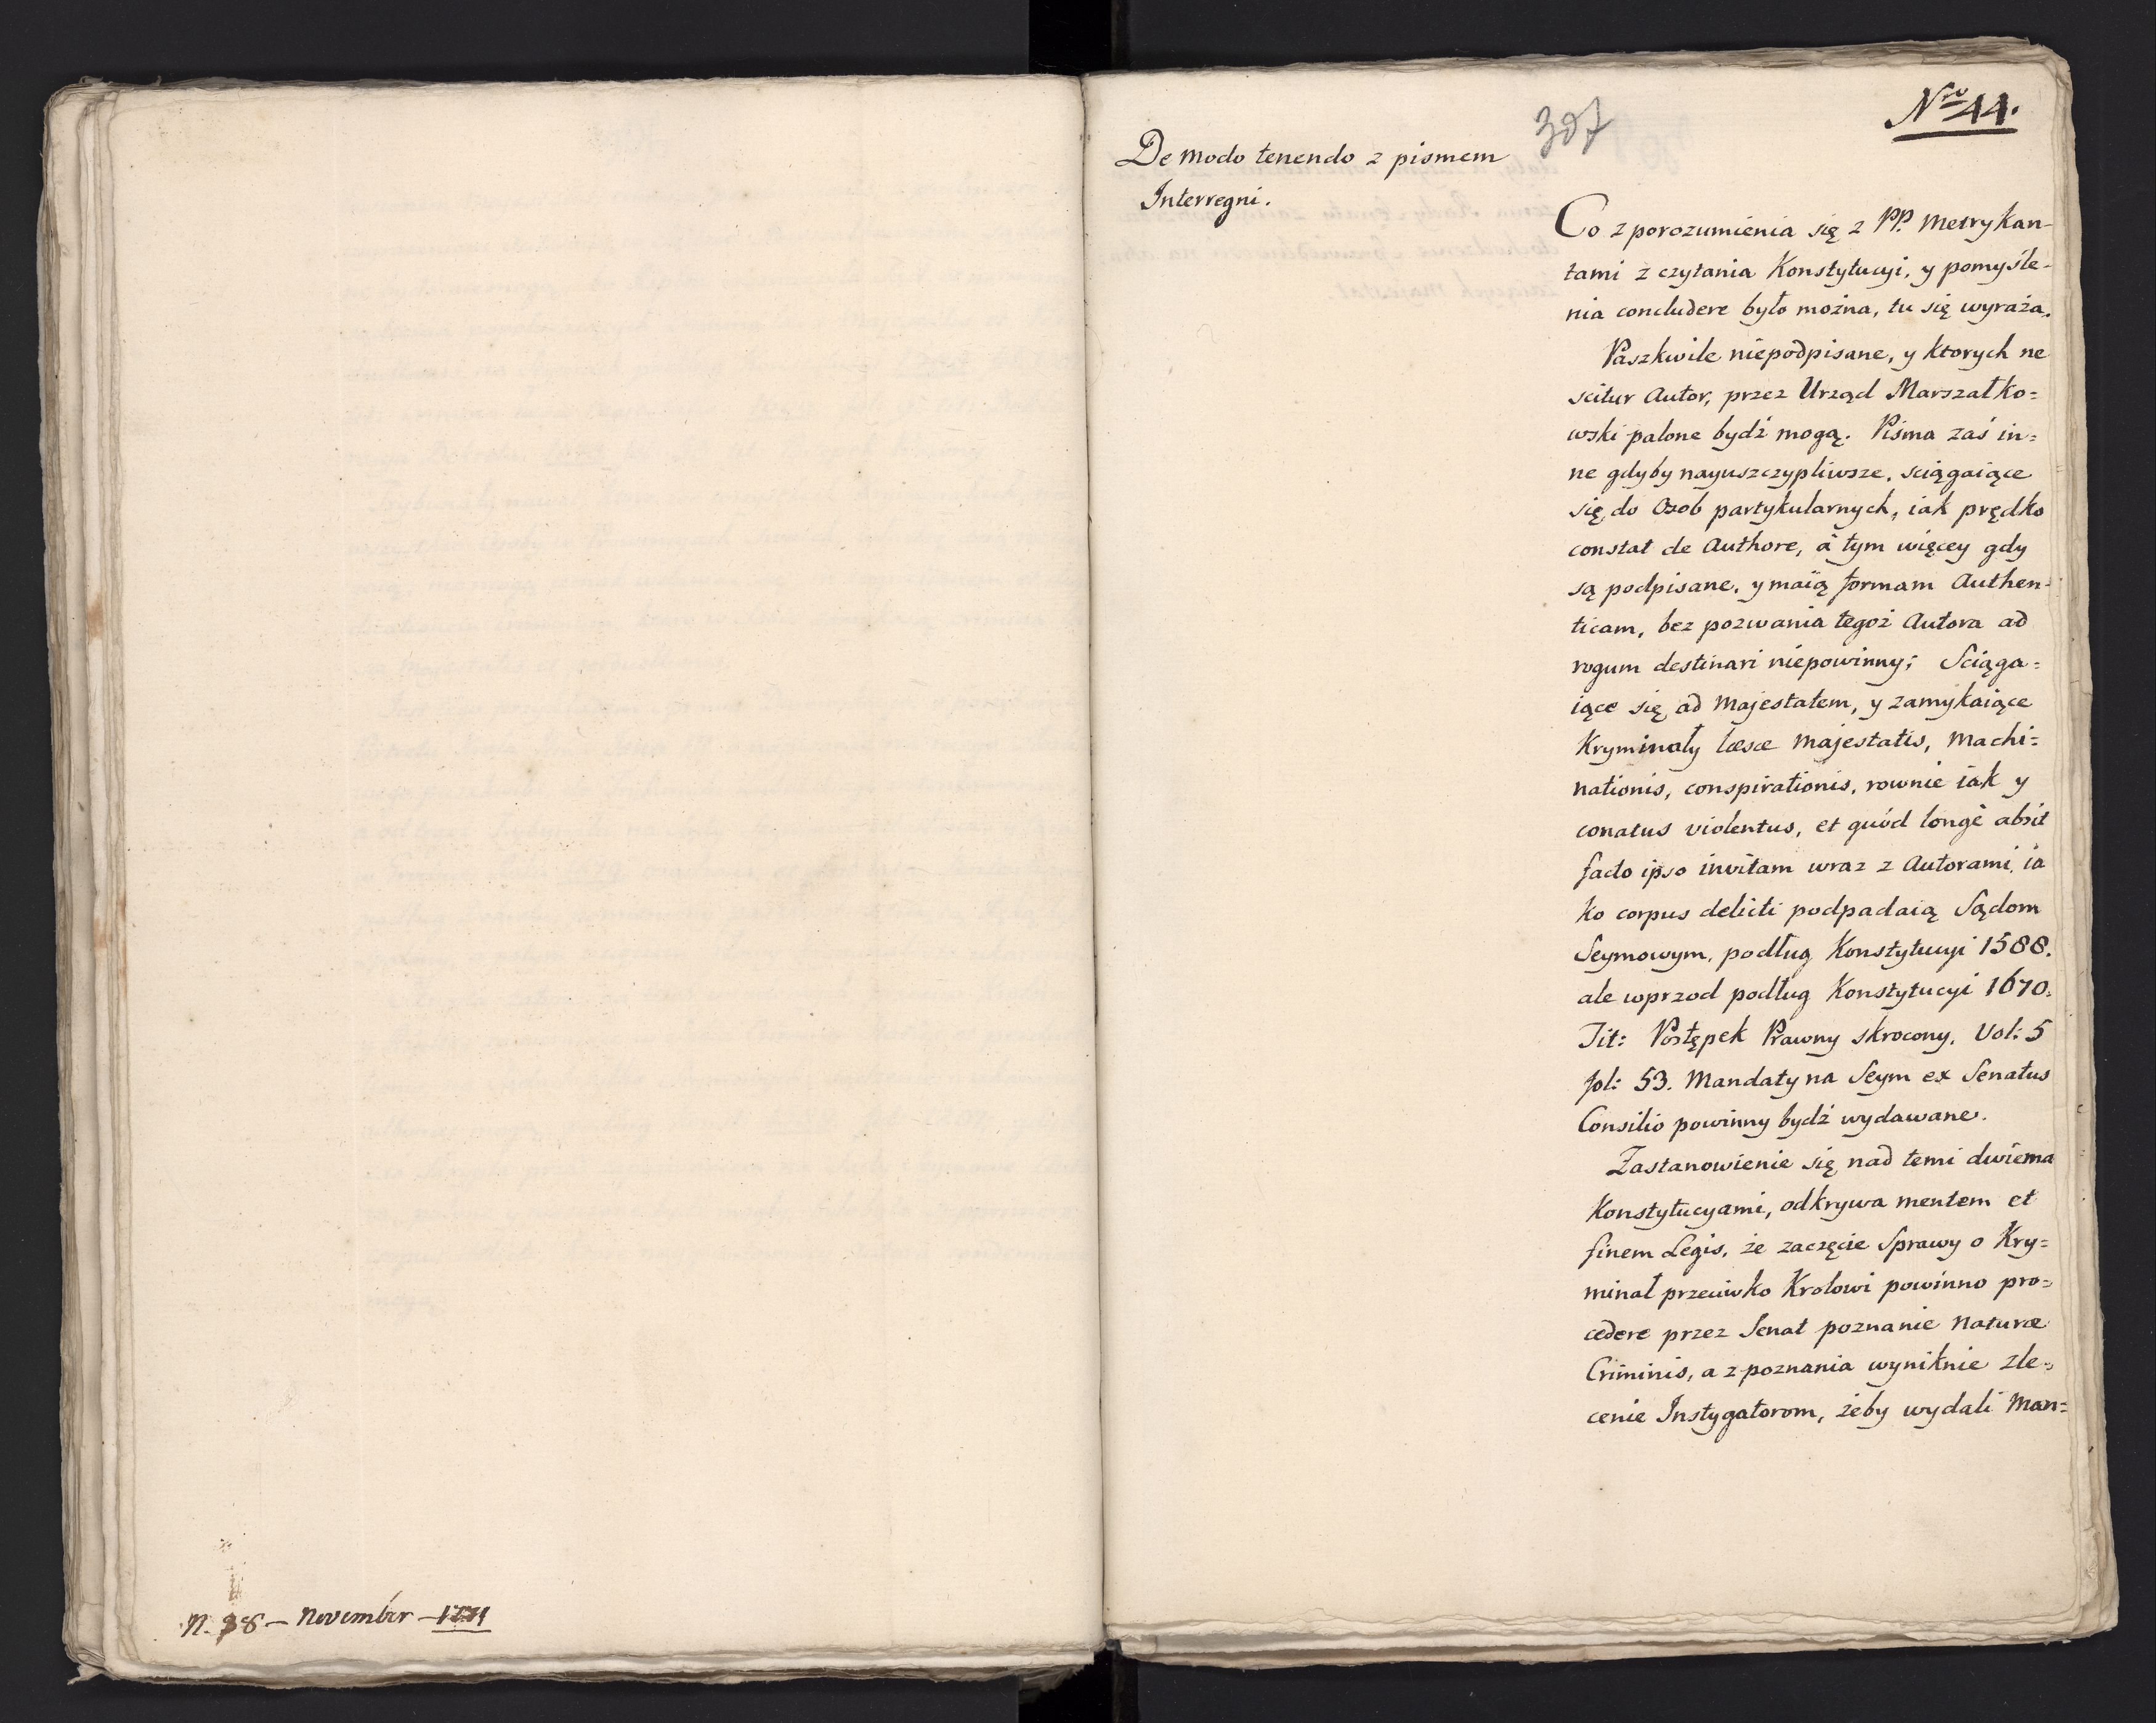 N. 38 – November – 1771
307
Nro 44.
De modo tenendo z pismem
Interregni.
Co z porozumienia się z PP. Metrykan-
tami z czytania Konstytucyi, y pomyśle-
nia concludere było można, tu się wyraża.
Paszkwile niepodpisane, y ktorych ne
scitur Autor, przez Urząd Marszałko=
wski palone bydź mogą. Pisma zaś in=
ne gdyby nayuszczypliwsze, sciągaiące
się do Osob partykularnych, iak prędko
constat de Authore, à tym więcey gdy
są podpisane, y maią formam Authen-
ticam, bez pozwania tegoż Autora ad
rogum destinari niepowinny; Sciąga=
iące się ad Majestatem, y zamykaiące
Kryminały læsæ Majestatis, Machi=
nationis, conspirationis, rownie iak y
conatus violentus, et quód longè absit
facto ipso invitam wraz z Autorami, ia
ko corpus delicti podpadaią Sądom
Seymowym, podług Konstytucyi 1588.
ale wprzod podług Konstytucyi 1670.
Tit: Postępek Prawny skrocony, Vol: 5
fol: 53. Mandaty na Seym ex Senatus
Consilio powinny bydź wydawane.
Zastanowienie się nad temi dwiema
Konstytucyami, odkrywa mentem et
finem Legis, że zaczęcie Sprawy o Kry=
minał przeciwko Krolowi powinno pro=
cedere przez Senat poznanie Naturæ
Criminis, a z poznania wyniknie zle=
cenie Instygatorom, żeby wydali Man=